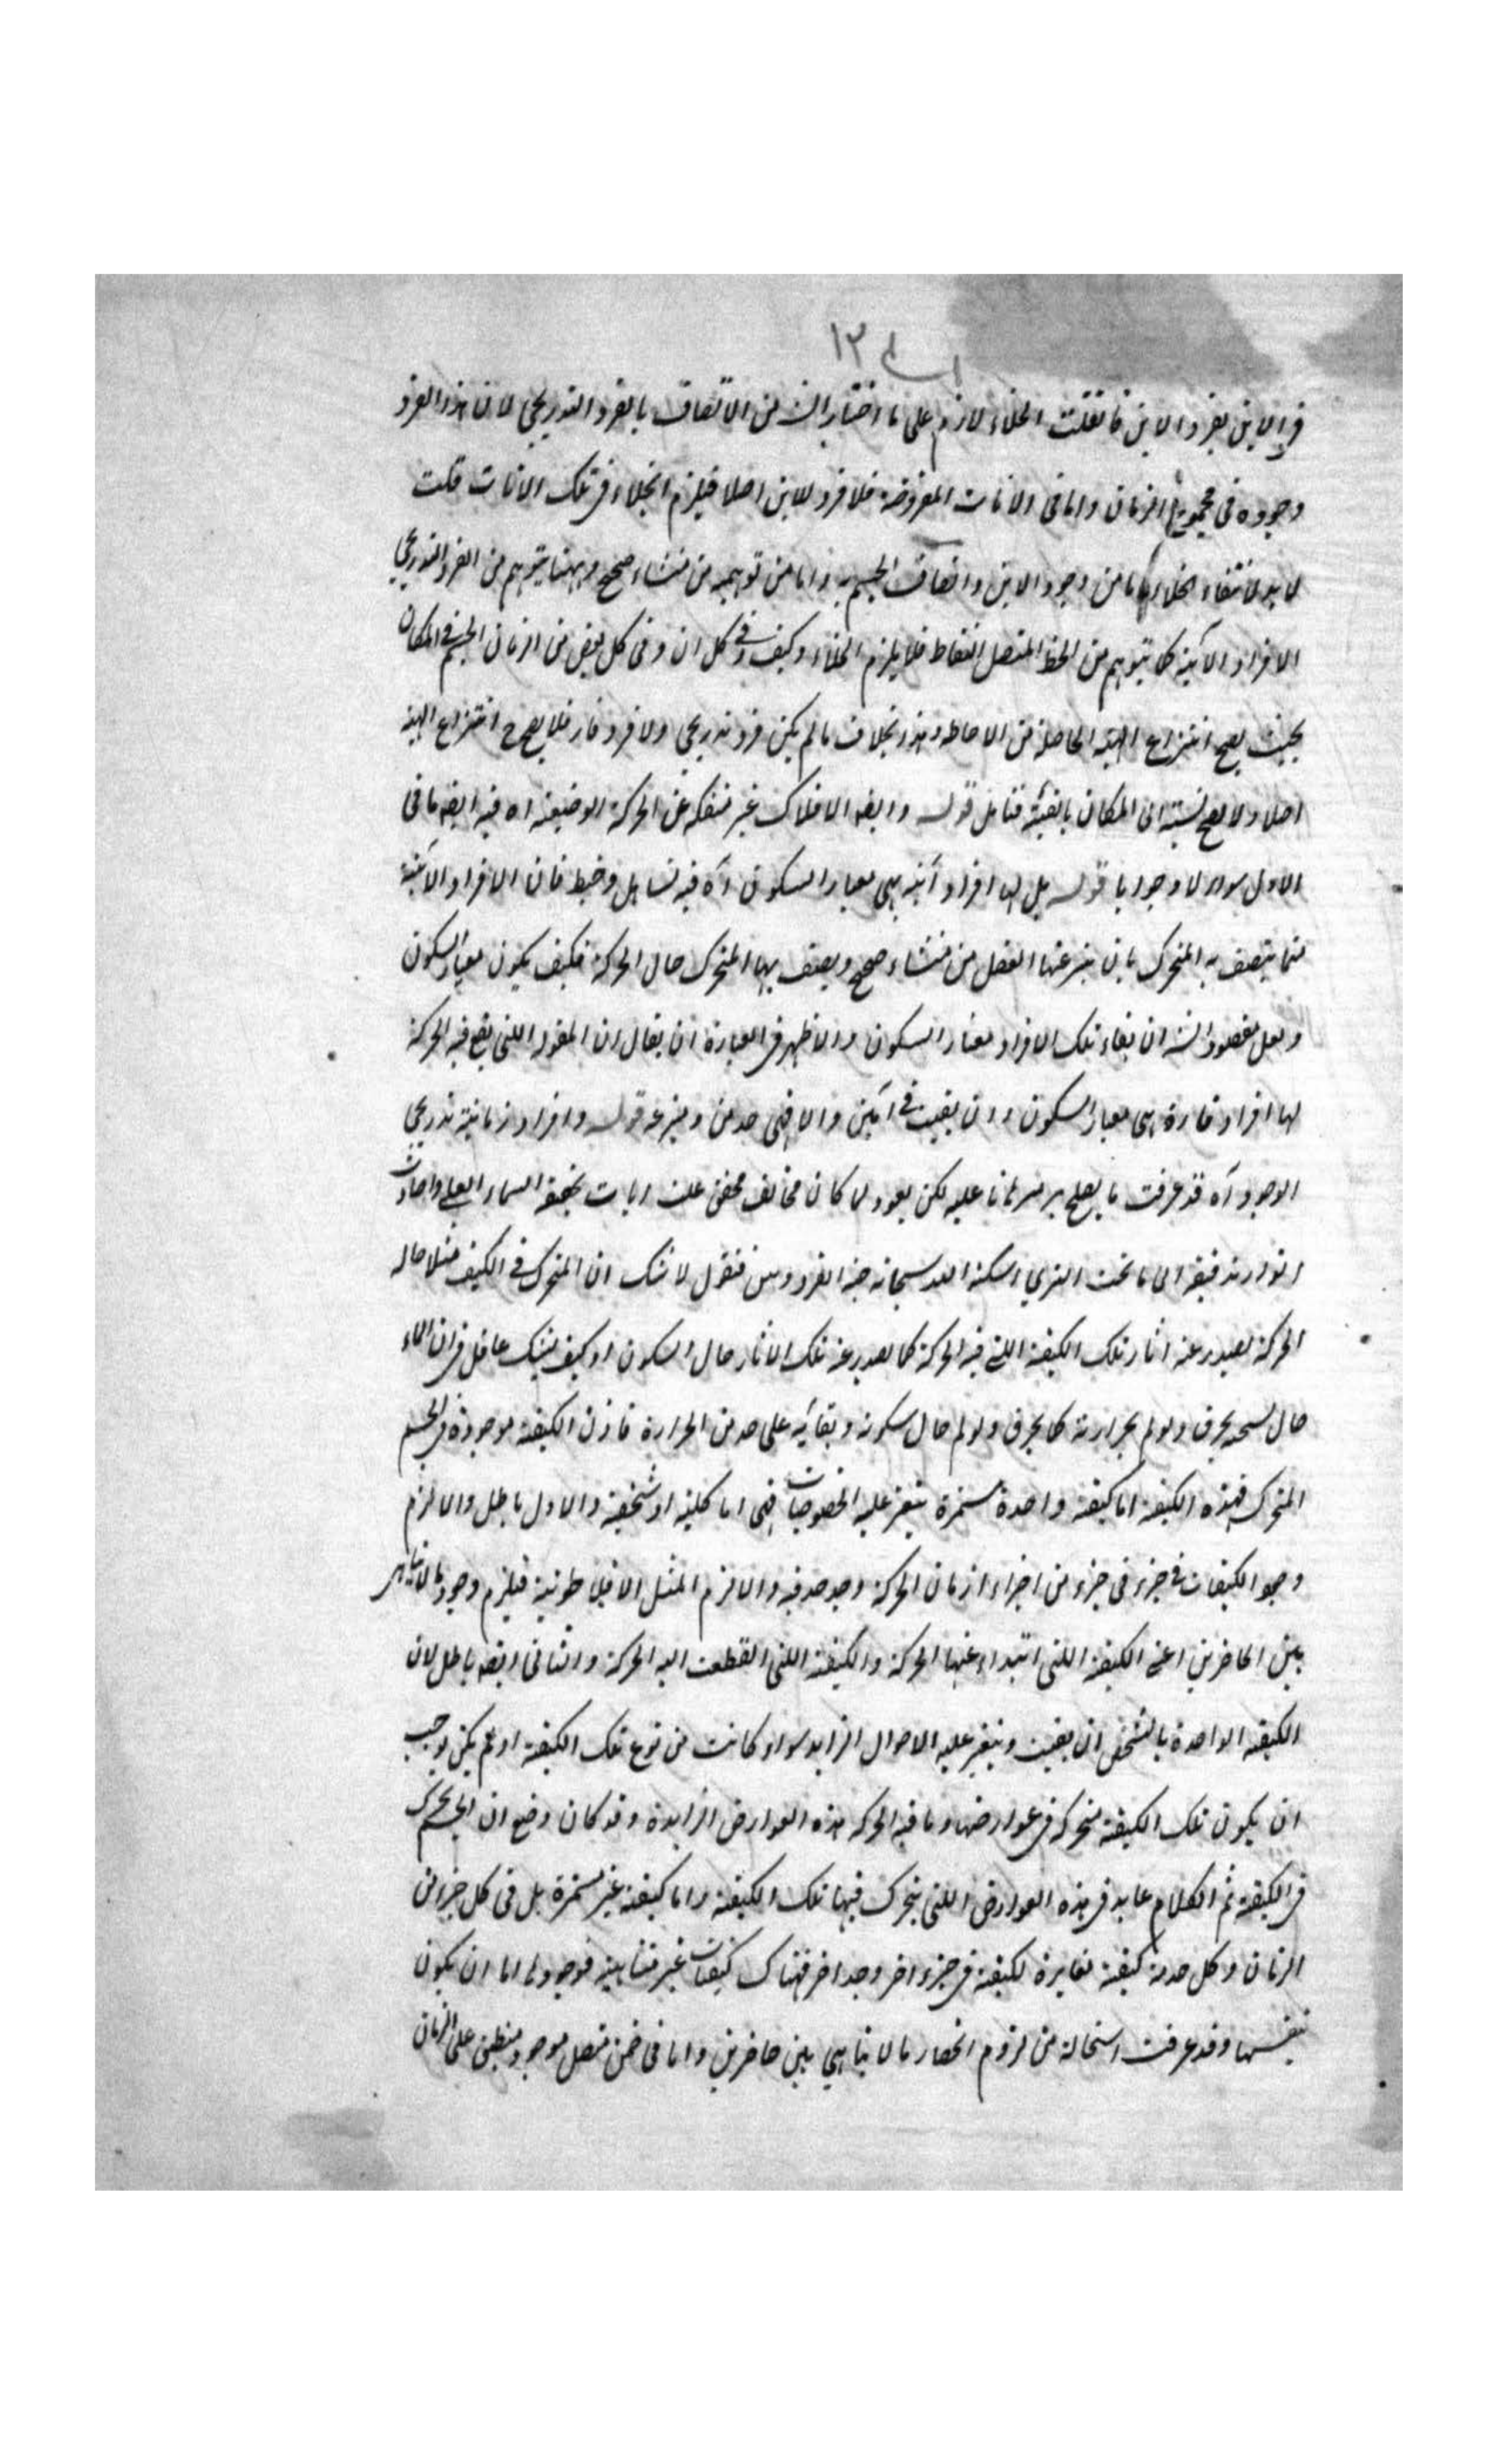 ١٣
فى الاين بفرد الاين فان قلت الخلاء لازم على ما اختار الش من الاتصاف بالفرد التدريجى لان هذا الفرد
وجوده فى مجموع الزمان واما فى الانات المفروضة فلا فرد للاين اصلا فيلزم الخلاء فى تلك الانات قلت
لا بد لانتفاء الخلاء اما من وجود الاين واتصاف الجسم به واما من توهمه من منشاء صحيح وههنا يتوهم من الفرد التدريجى
الافراد الآنية كما يتوهم من الخط المتصل النقاط فلا يلزم الخلاء وكيف وفى كل ان وفى كل بعض من الزمان الجسم فى المكان
بحيث يصح انتزاع الهيئة الحاصلة من الاحاطة وهذا بخلاف ما لم يكن فرد تدريجى ولا فرد قار فلا يصح ح انتزاع الهيئة
اصلا ولا يصح نسبته الى المكان بالفيئة فتامل قوله وايضا الافلاك غير منفكة عن الحركة الوضعية اه فيه ايضا ما فى
الاول سوالا وجوابا قوله بل لها افراد آنية هى معيار السكون اه فيه تساهل وخبط فان الافراد الآنية
مما يتصف به المتحرك بان ينتزعها العقل من منشاء صحيح ويصف بها المتحرك حال الحركة فكيف يكون معيار السكون
ولعل مقصود الش ان بقاء تلك الافراد معيار السكون والاظهر فى العبارة ان يقال ان المقولة اللتى يقع فيه الحركة
لها افراد قارة هى معيار السكون ان بقيت فى آنين والا فهى حد من قوله وافراد زمانية تدريجى
الوجود اه قد عرفت ما يصلح برهانا عليه لكن يعود لما كان مخالف رايات تحقيق السماء العلى واحاديث
انوار تدقيقه الى ما تحت الثرى اسكنه الله سبحانه جنة الفردوس فنقول لا شك ان المتحرك فى الكيف مثلا حاله
الحركة يصدر عنه اثار تلك الكيفية اللتى فيه الحركة كما يصدر عنه تلك الاثار حال السكون او كيف يشك عاقل فى ان الماء
حال تسخنه يحرق ويولم بحرارته كما يحرق ويولم حال سكونه وبقائه على حد من الحرارة فاذن الكيفية موجودة فى الجسم
المتحرك فهذه الكيفية اما كيفية واحدة مستمرة يتغير عليه الخصوصيات فهى اما كلية او شخصية والاول باطل والا لزم
وجود الكيفيات فى جزء جزء من اجزاء ازمان الحركة وحد حد فيه والا لزم المثل الافلاطونية فيلزم وجود ما لا يتناهى
بين الحاضرين اعنى الكيفية اللتى ابتداء عنها الحركة والكيفية اللتى انقطعت اليه الحركة والثانى ايضا باطل لان
الكيفية الواحدة بالشخص ان بقيت ويتغير عليه الاحوال الزايد سواء كانت من نوع تلك الكيفية او لم يكن يوجب
ان يكون تلك الكيفية متحركة فى عوارضها وما فيه الحركة هذه العوارض الزايدة وقد كان وضع ان الجسم يتحرك
فى الكيفية ثم الكلام عايد فى هذه العوارض اللتى يتحرك فيها تلك الكيفية واما كيفية غير مستمرة بل فى كل جزء من
الزمان وكل حد منه كيفية مغايرة لكيفية فى جزء اخر وحد اخر فهناك كيفيات غير متناهية فوجودها اما ان يكون
بنفسها وقد عرفت استحالة من لزوم انحصار ما لا يتناهى بين حاضرين واما فى ضمن متصل موجود منطبق على الزمان